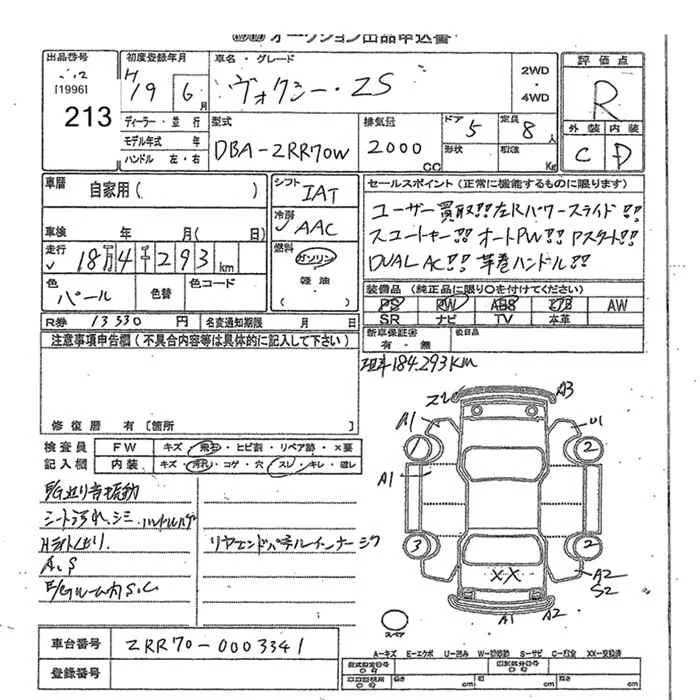 オークション出品申込書
出品番号
[1996]
213
初度登録年月
H19 6月
ディーラー・並行
モデル年式 年
ハンドル 左・右
車名・グレード
ヴォクシー・ZS
2WD
・
4WD
型式
DBA-ZRR70W
排気量
2000
CC
ドア
5
形状
定員
8人
積載
Kg
評価点
R
外装 内装
C D
車暦 自家用( )
車検 年 月( 日)
走行
18万4千293km
色
パール
色替
色コード
R券 13330 円 名変通知期限 月 日
シフト
IAT
冷房
AAC
燃料
ガソリン
軽油
セールスポイント(正常に機能するものに限ります)
ユーザー買取!!左Rパワースライド!!
スマートキー!!オートPW!!Pスタート!!
DUAL AC!!革巻ハンドル!!
装備品(純正品に限り○を付けてください)
PS PW ABS エアB AW
SR ナビ TV 本革
新車保証書
有・無
後日品
注意事項申告欄(不具合内容等は具体的に記入して下さい)
修復暦 有〔箇所 〕
現車184.293km
検査員
記入欄
FW キズ・飛石・ヒビ割・リペア跡・×要
内装 キズ・汚れ・コゲ・穴・スレ・キレ・破レ
シート汚れ、シミ、ハンドルハゲ
A.S
E/Gルーム内S.C
リヤエンドパネルインナージワ
A3
A1
U1
1
2
A1
3
2
XX
A2
S2
A1
A2
スペア
車台番号 ZRR70-0003341
登録番号
A-キズ E-エクボ U-凹み W-補修跡 S-サビ C-腐食 XX-交換済
cm
cm
cm